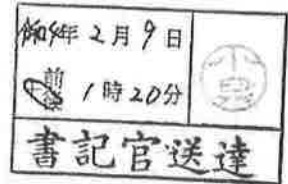 令和4年2月9日
午前後 1時20分
小泉
書記官送達